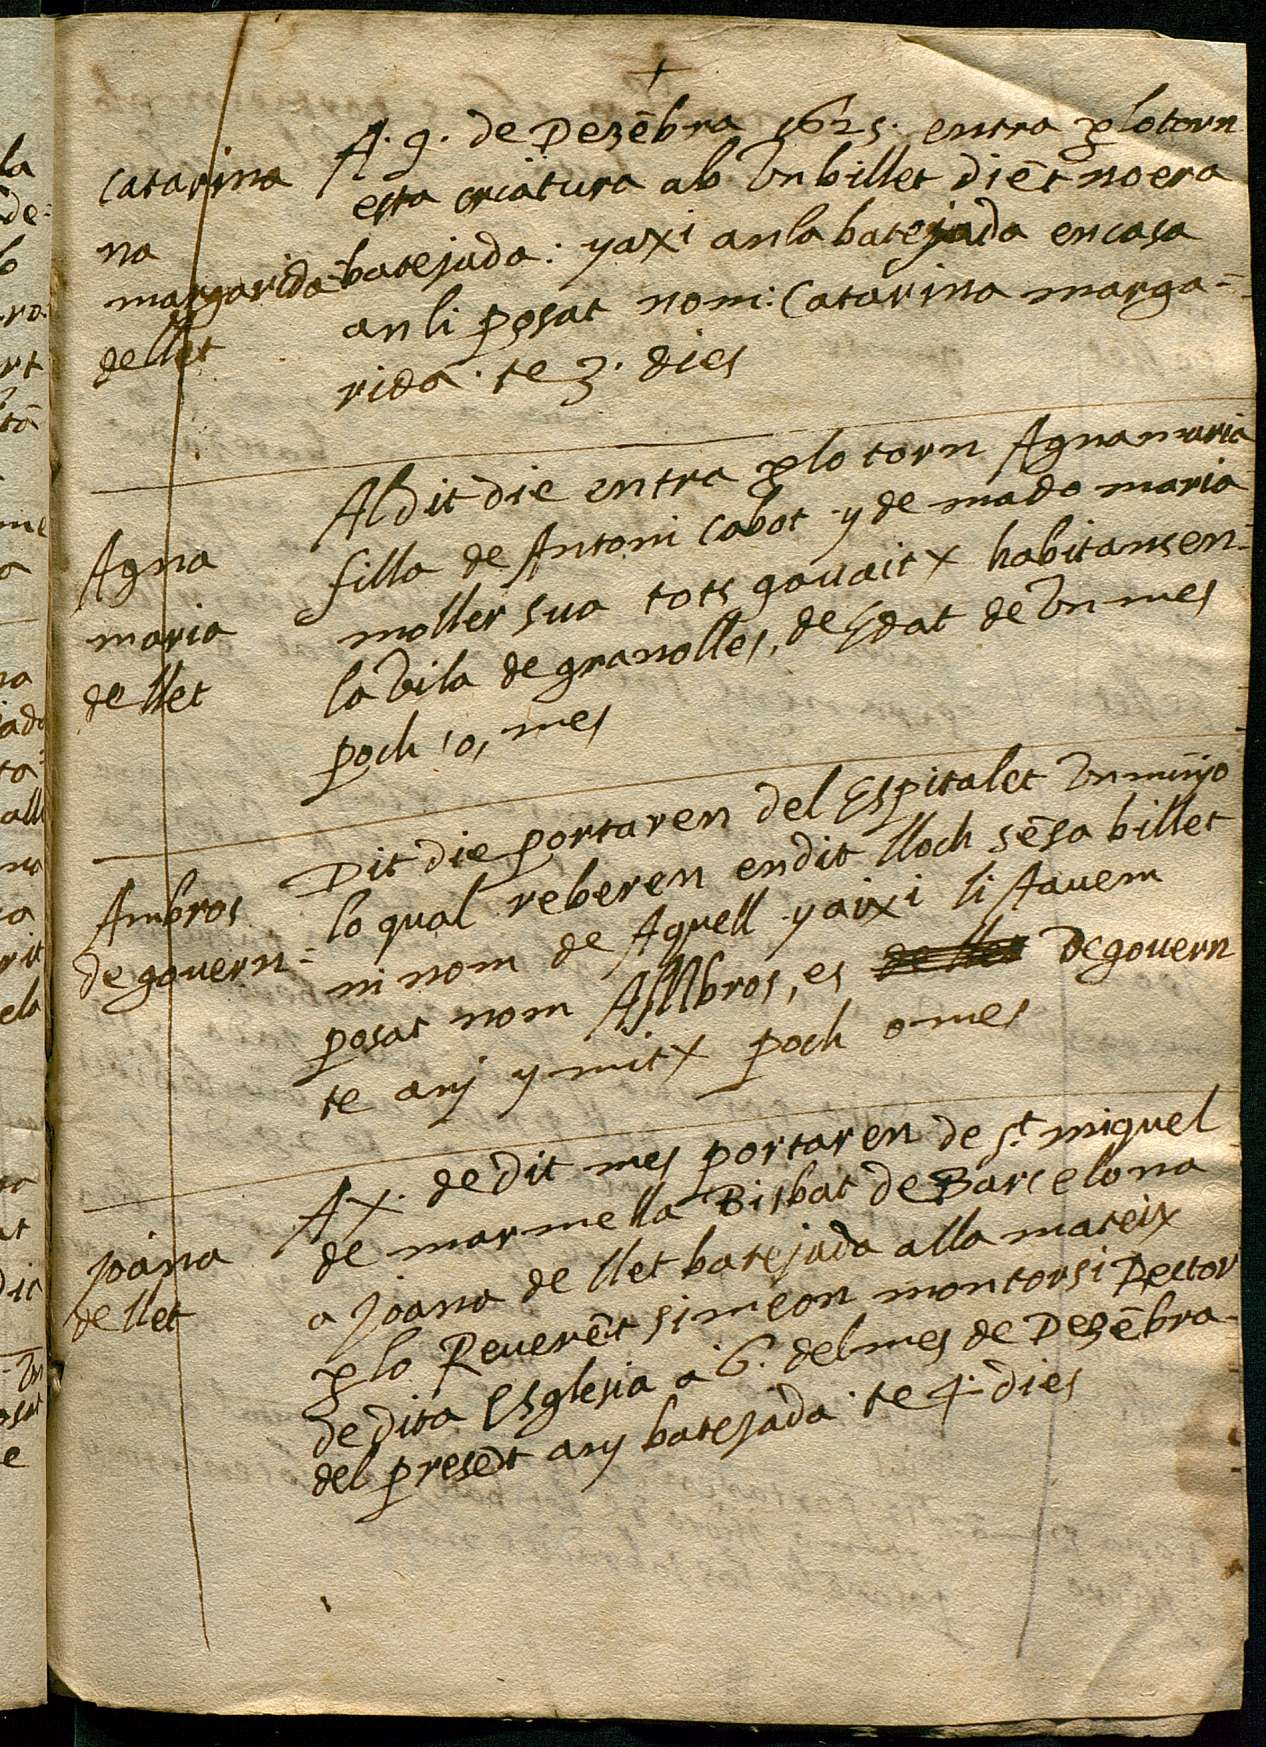 +
Catarina
na
margarida
de llet
A. 9. de Dezēbra 1625. entra p lo torn
esta criatura ab un billet diēt no era
batejada: y axi an la batejada en casa
an li posat nom: Catarina marga-
rida. te 3. dies
Agna
maria
de llet
Al dit die entra p lo torn Agna maria
filla de Antoni Cabot y de mado maria
moller sua tots gavaitx habitans en
la vila de granolles, de Edat de un mes
poch, o, mes
Ambros
de govern-
Dit die portaren del Espitalet un minyo
lo qual reberen en dit lloch sēsa billet
ni nom de Aquell y aixi li Auem
posat nom AMbros, es de llet De govern
te any y mitx poch o mes
Joana
de llet
A X. de dit mes portaren de st miquel
de marmella Bisbat de Barcelona
a Joana de llet batejada alla mateix
p lo Reverēt simeon montorsi Rector
de dita Esglesia a 6. del mes de Dezēbra
del presēt any batejada te 4. dies